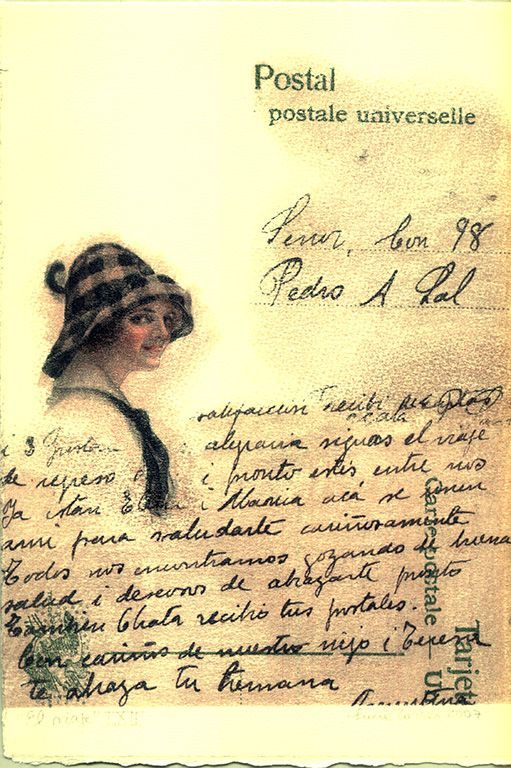 Postal
postale universelle
Señor, Con 98
Pedro A Sal
satisfaccion recibi
alegraria siguas el viaje
de regreso i pronto estés entre nos
Ya están i acá se unen
ami para saludarte cariñosamente
Todos nos encontramos gozando de buena
salud i deseosos de abrazarte pronto
Tambien Chata recibio tus postales.
Con cariños de nuestro viejo i Teresa
te abraza tu hermana
Carte postale
Tarjet